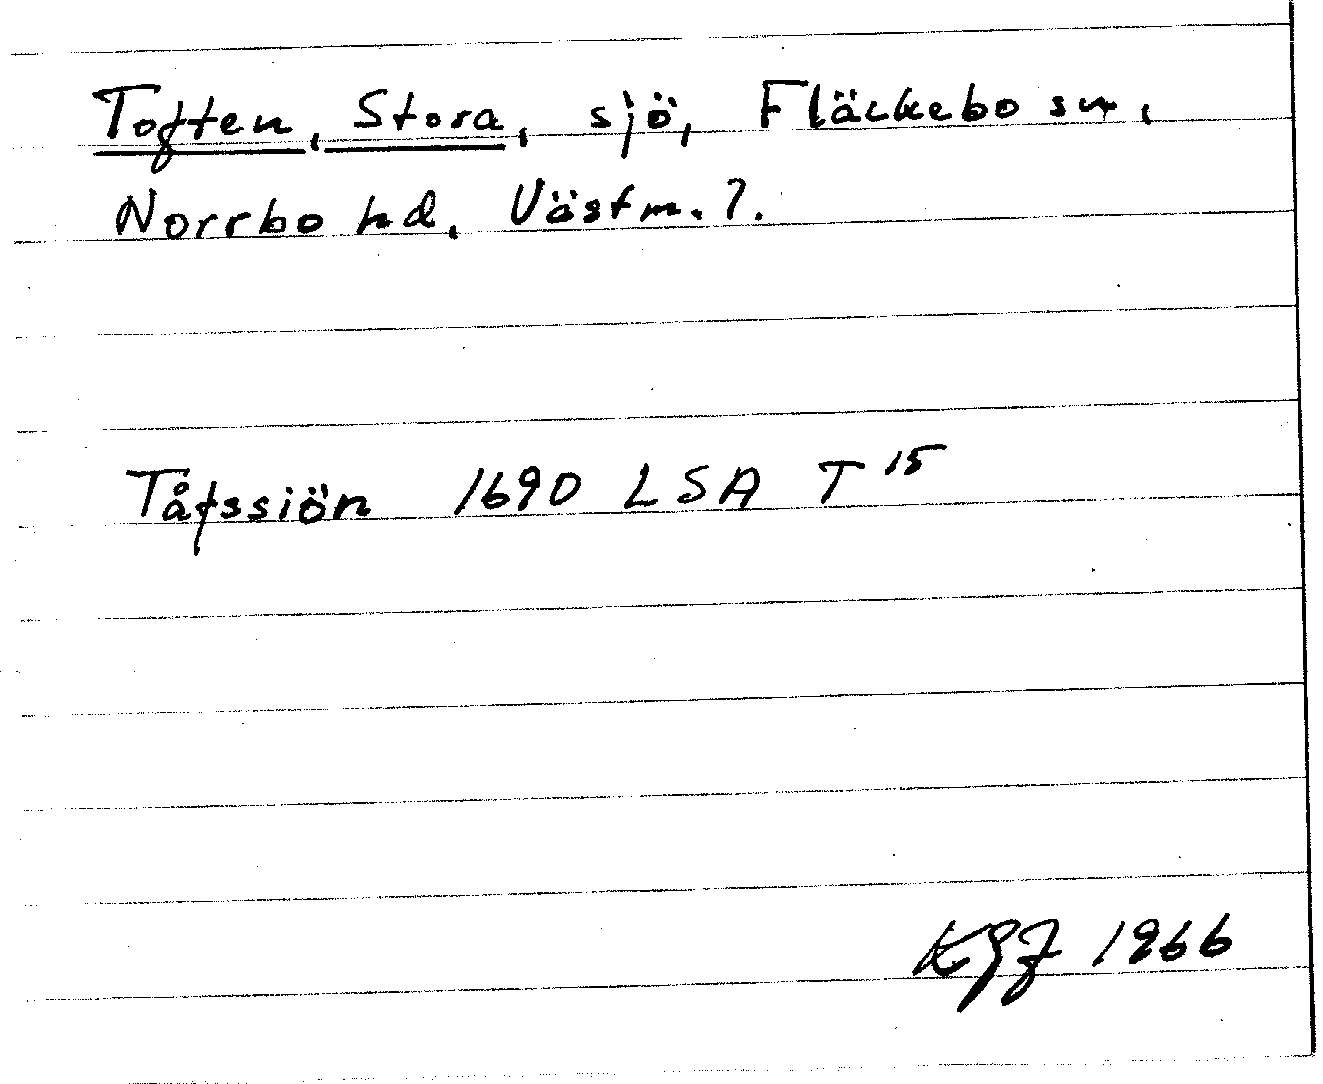 Toften, Stora, sjö, Fläckebo sn,
Norrbo hd, Västm. l.
Tåfssiön 1690 LSA T 15
KGF 1966